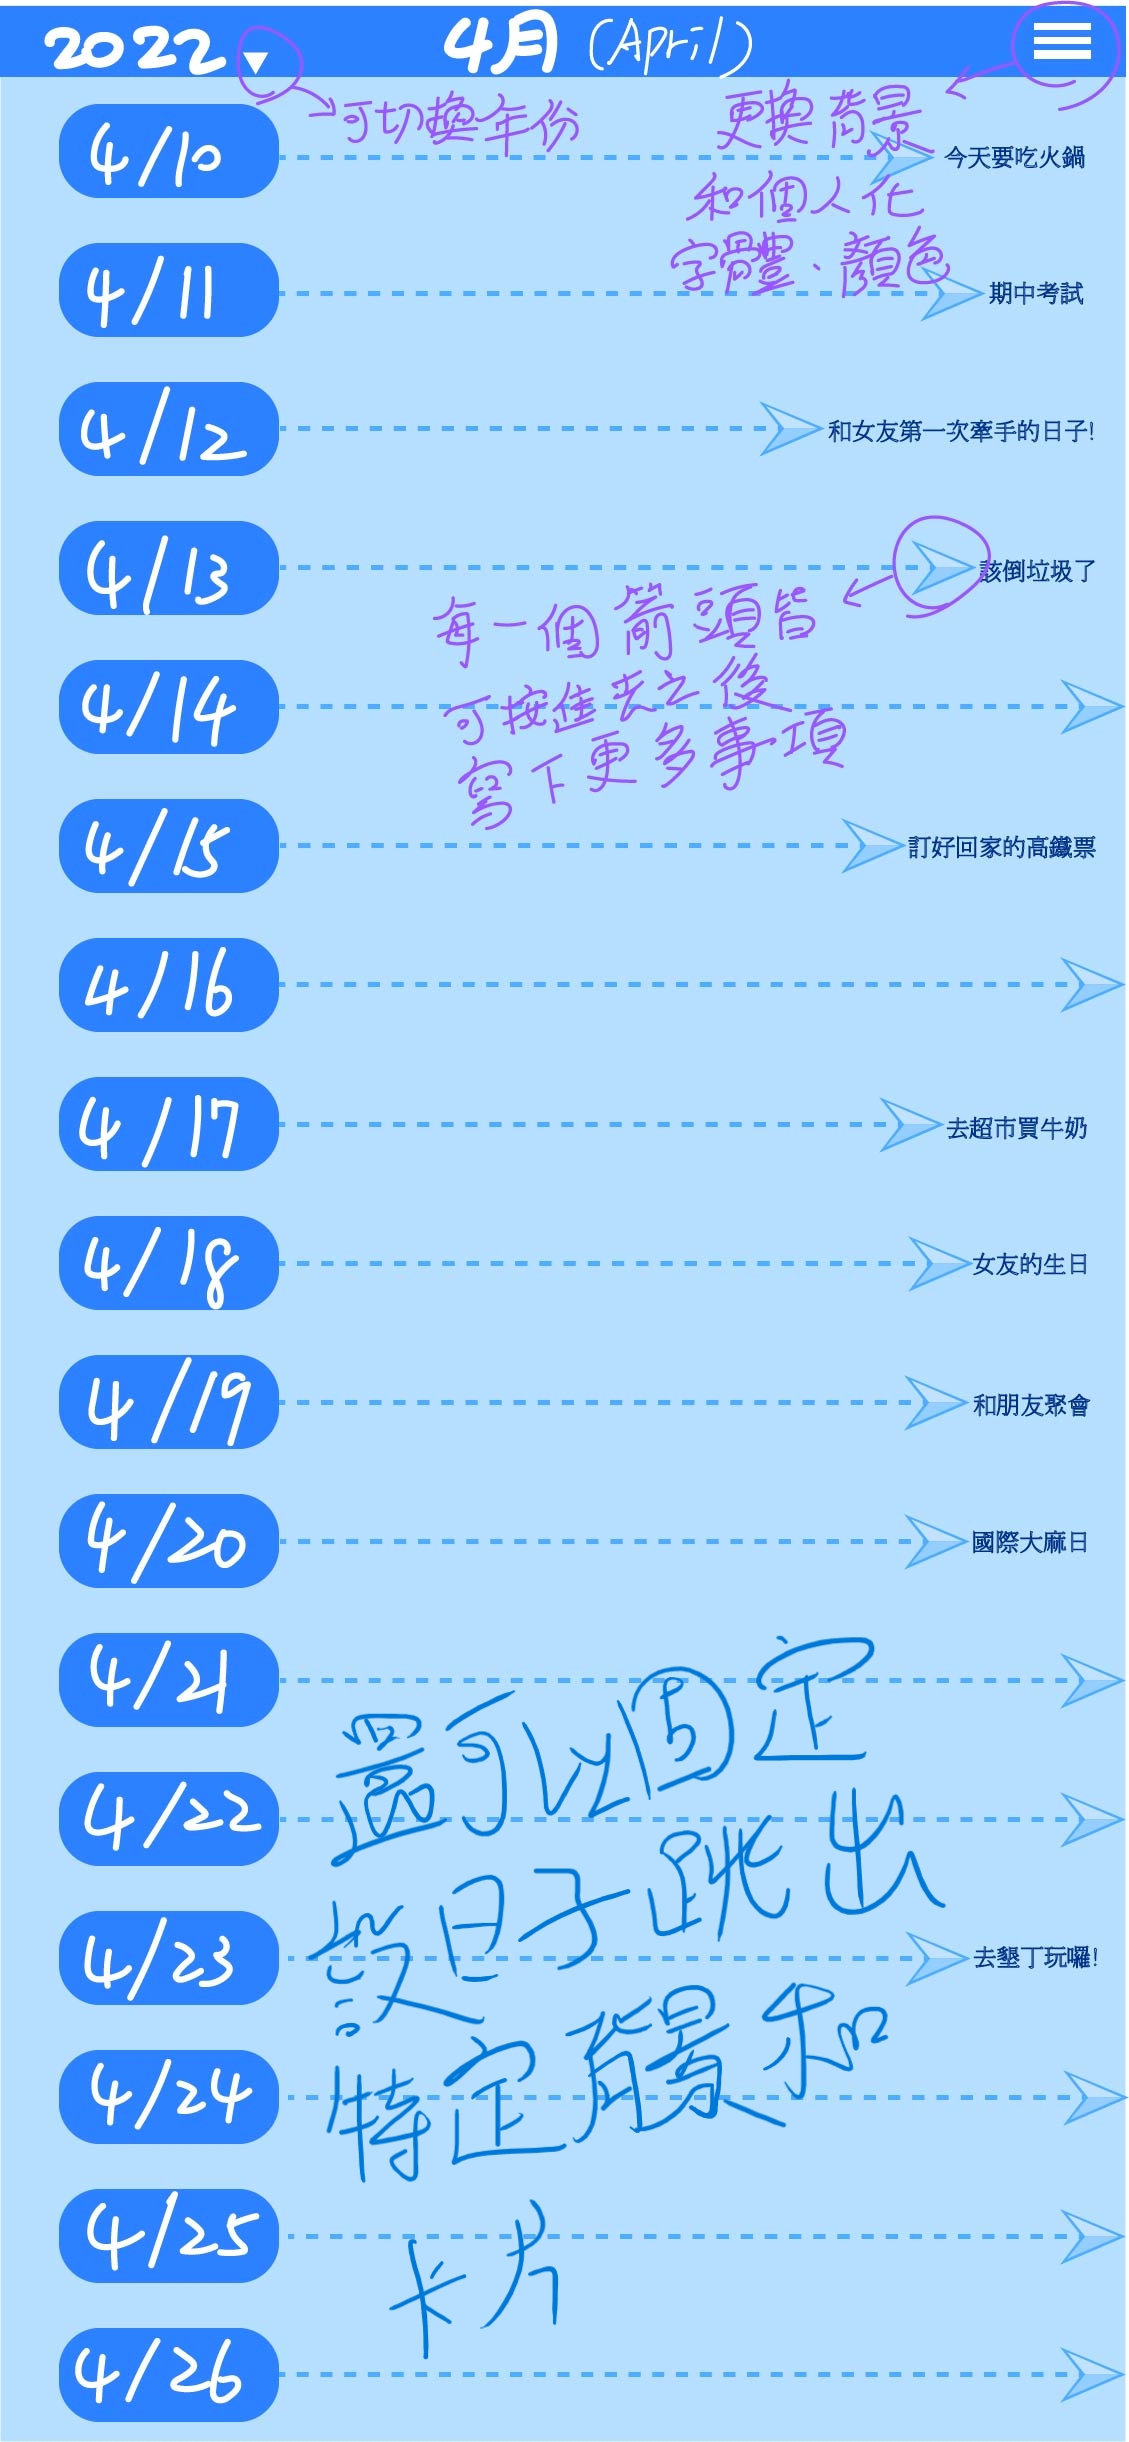 2022 ▼ 4月 (April)
可切換年份
更換背景
和個人化
字體、顏色
4/10 今天要吃火鍋
4/11 期中考試
4/12 和女友第一次牽手的日子!
4/13 該倒垃圾了
每一個箭頭皆
可按進去之後
寫下更多事項
4/14
4/15 訂好回家的高鐵票
4/16
4/17 去超市買牛奶
4/18 女友的生日
4/19 和朋友聚會
4/20 國際大麻日
4/21
還可以固定
4/22
設日子跳出
4/23 去墾丁玩囉!
特定背景和
4/24
4/25
卡片
4/26